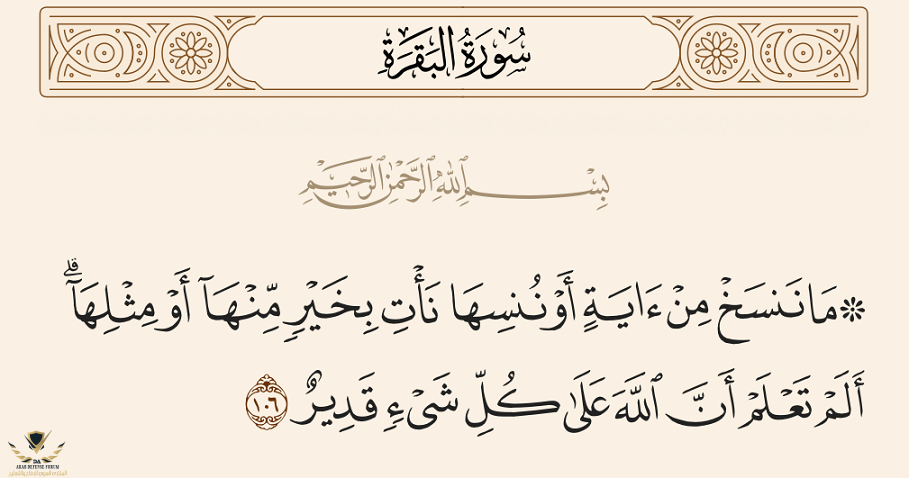 سُورَةُ البَقَرَةِ
بِسْمِ اللَّهِ الرَّحْمَٰنِ الرَّحِيمِ
۞ مَا نَنسَخْ مِنْ ءَايَةٍ أَوْ نُنسِهَا نَأْتِ بِخَيْرٍ مِّنْهَآ أَوْ مِثْلِهَآۗ
أَلَمْ تَعْلَمْ أَنَّ ٱللَّهَ عَلَىٰ كُلِّ شَىْءٍ قَدِيرٌ ١٠٦
DA
ARAB DEFENSE FORUM